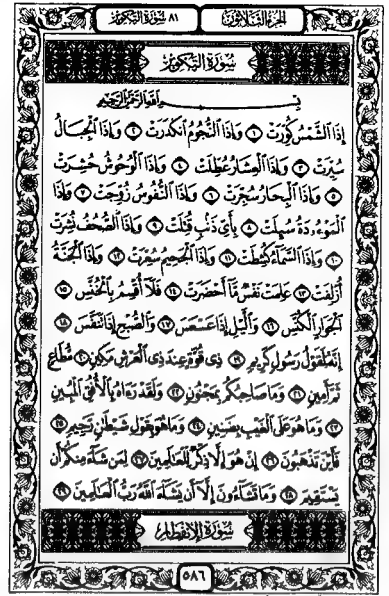 الجُزءُ الثَّلَاثُونَ ٨١ سُورَةُ التَّكْوِيرِ
سُورَةُ التَّكْوِيرِ
بِسْمِ ٱللَّهِ ٱلرَّحْمَٰنِ ٱلرَّحِيمِ
إِذَا ٱلشَّمْسُ كُوِّرَتْ ١ وَإِذَا ٱلنُّجُومُ ٱنكَدَرَتْ ٢ وَإِذَا ٱلْجِبَالُ
سُيِّرَتْ ٣ وَإِذَا ٱلْعِشَارُ عُطِّلَتْ ٤ وَإِذَا ٱلْوُحُوشُ حُشِرَتْ
٥ وَإِذَا ٱلْبِحَارُ سُجِّرَتْ ٦ وَإِذَا ٱلنُّفُوسُ زُوِّجَتْ ٧ وَإِذَا
ٱلْمَوْءُۥدَةُ سُئِلَتْ ٨ بِأَىِّ ذَنۢبٍ قُتِلَتْ ٩ وَإِذَا ٱلصُّحُفُ نُشِرَتْ
١٠ وَإِذَا ٱلسَّمَآءُ كُشِطَتْ ١١ وَإِذَا ٱلْجَحِيمُ سُعِّرَتْ ١٢ وَإِذَا ٱلْجَنَّةُ
أُزْلِفَتْ ١٣ عَلِمَتْ نَفْسٌ مَّآ أَحْضَرَتْ ١٤ فَلَآ أُقْسِمُ بِٱلْخُنَّسِ ١٥
ٱلْجَوَارِ ٱلْكُنَّسِ ١٦ وَٱلَّيْلِ إِذَا عَسْعَسَ ١٧ وَٱلصُّبْحِ إِذَا تَنَفَّسَ ١٨
إِنَّهُۥ لَقَوْلُ رَسُولٍ كَرِيمٍ ١٩ ذِى قُوَّةٍ عِندَ ذِى ٱلْعَرْشِ مَكِينٍ ٢٠ مُّطَاعٍ
ثَمَّ أَمِينٍ ٢١ وَمَا صَاحِبُكُم بِمَجْنُونٍ ٢٢ وَلَقَدْ رَءَاهُ بِٱلْأُفُقِ ٱلْمُبِينِ
٢٣ وَمَا هُوَ عَلَى ٱلْغَيْبِ بِضَنِينٍ ٢٤ وَمَا هُوَ بِقَوْلِ شَيْطَٰنٍ رَّجِيمٍ ٢٥
فَأَيْنَ تَذْهَبُونَ ٢٦ إِنْ هُوَ إِلَّا ذِكْرٌ لِّلْعَٰلَمِينَ ٢٧ لِمَن شَآءَ مِنكُمْ أَن
يَسْتَقِيمَ ٢٨ وَمَا تَشَآءُونَ إِلَّآ أَن يَشَآءَ ٱللَّهُ رَبُّ ٱلْعَٰلَمِينَ ٢٩
سُورَةُ الِانفِطَارِ
٥٨٦